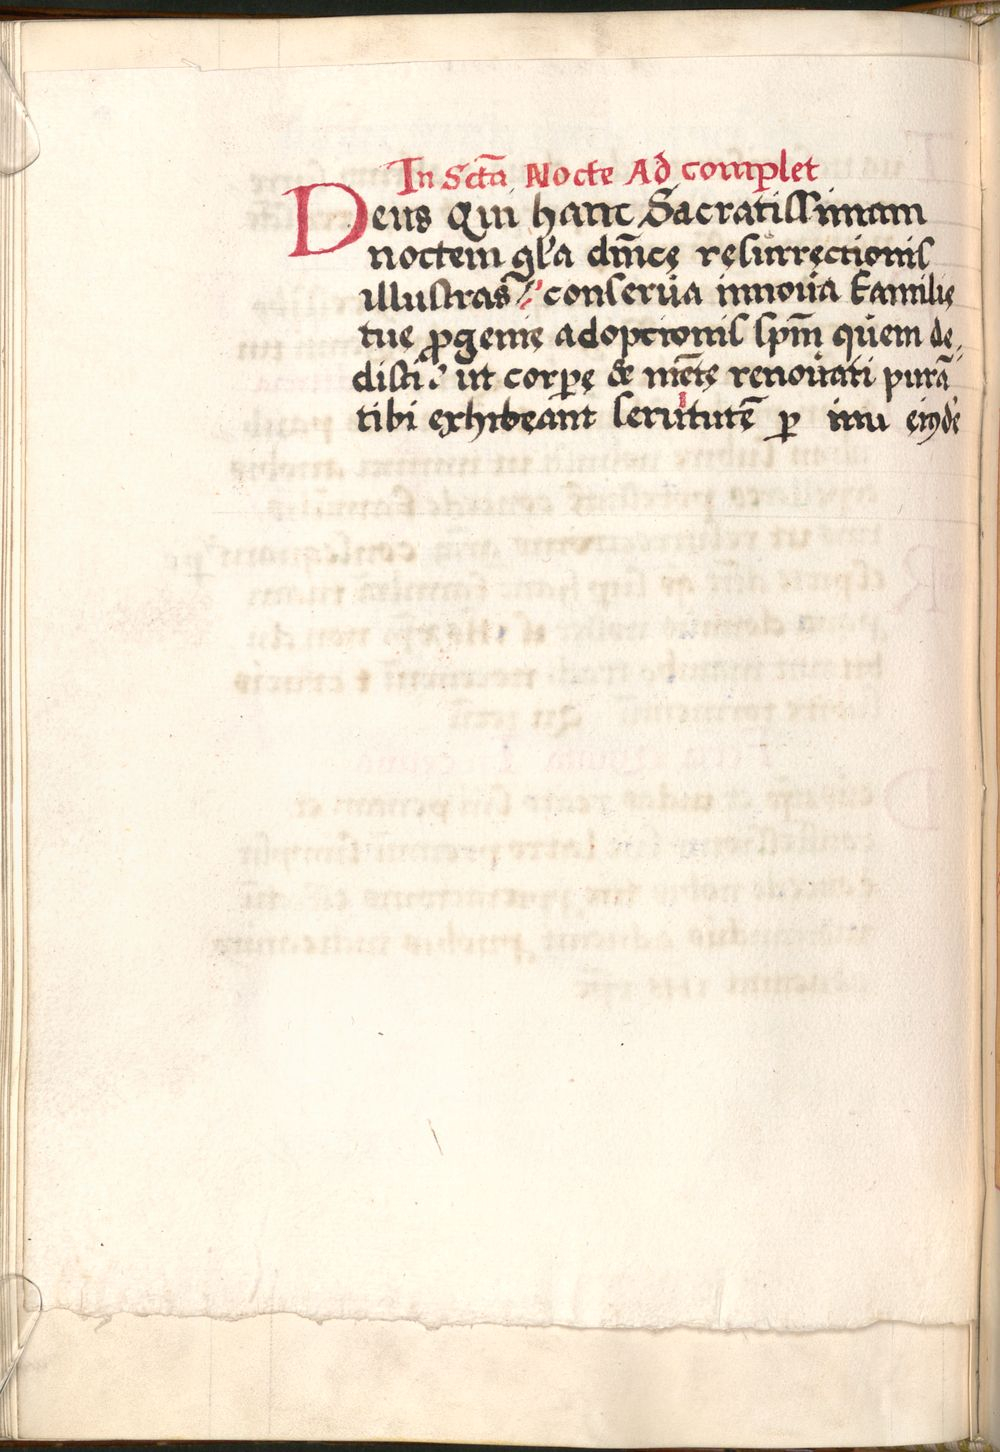 In Sctā Nocte Ad complet
Deus Qui hanc Sacratissimam
noctem gl'a dn̄icę resurrectionis
illustras conserua innoua Familię
tuę ꝓgenię adoptionis spm̄ quem de,
disti ut corpę & mētę renouati purā
tibi exhibeant seruitutē ꝑ